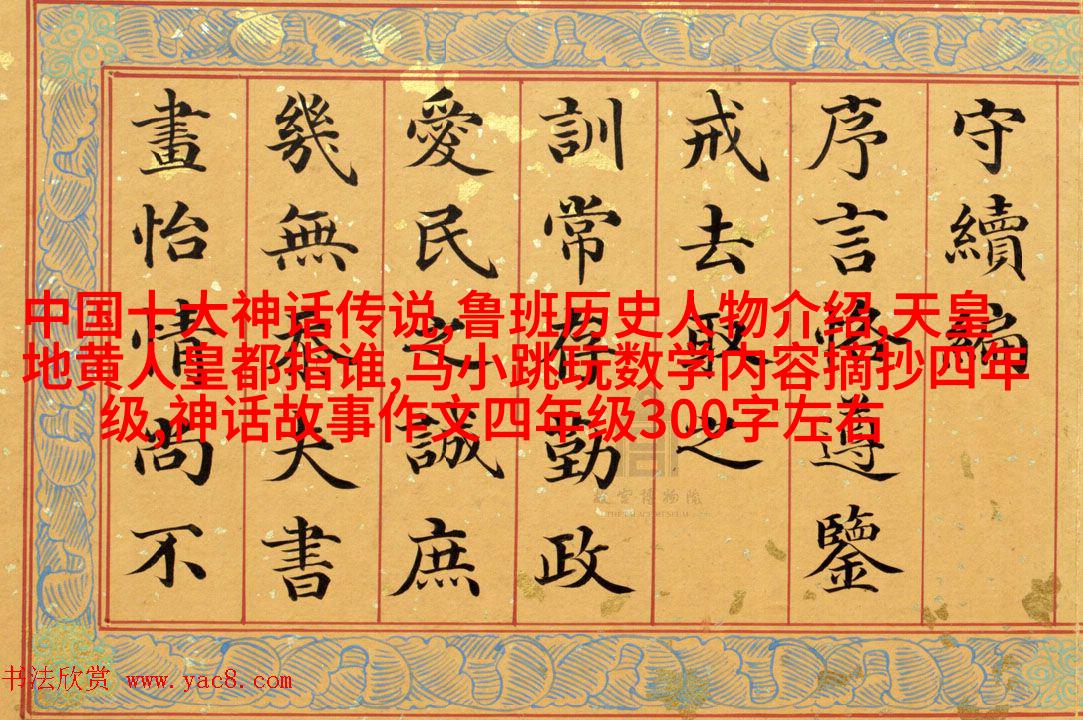 守續編
序言恪遵鑒
戒去取之
訓常存勤政
愛民之誠庶
幾無忝夫書
畫怡情尚不
中国十大神话传说,鲁班历史人物介绍,天皇
地黄人皇都指谁,马小跳玩数学内容摘抄四年
级,神话故事作文四年级300字左右
故宮博物院
THE PALACE MUSEUM
书法欣赏 www.yac8.com